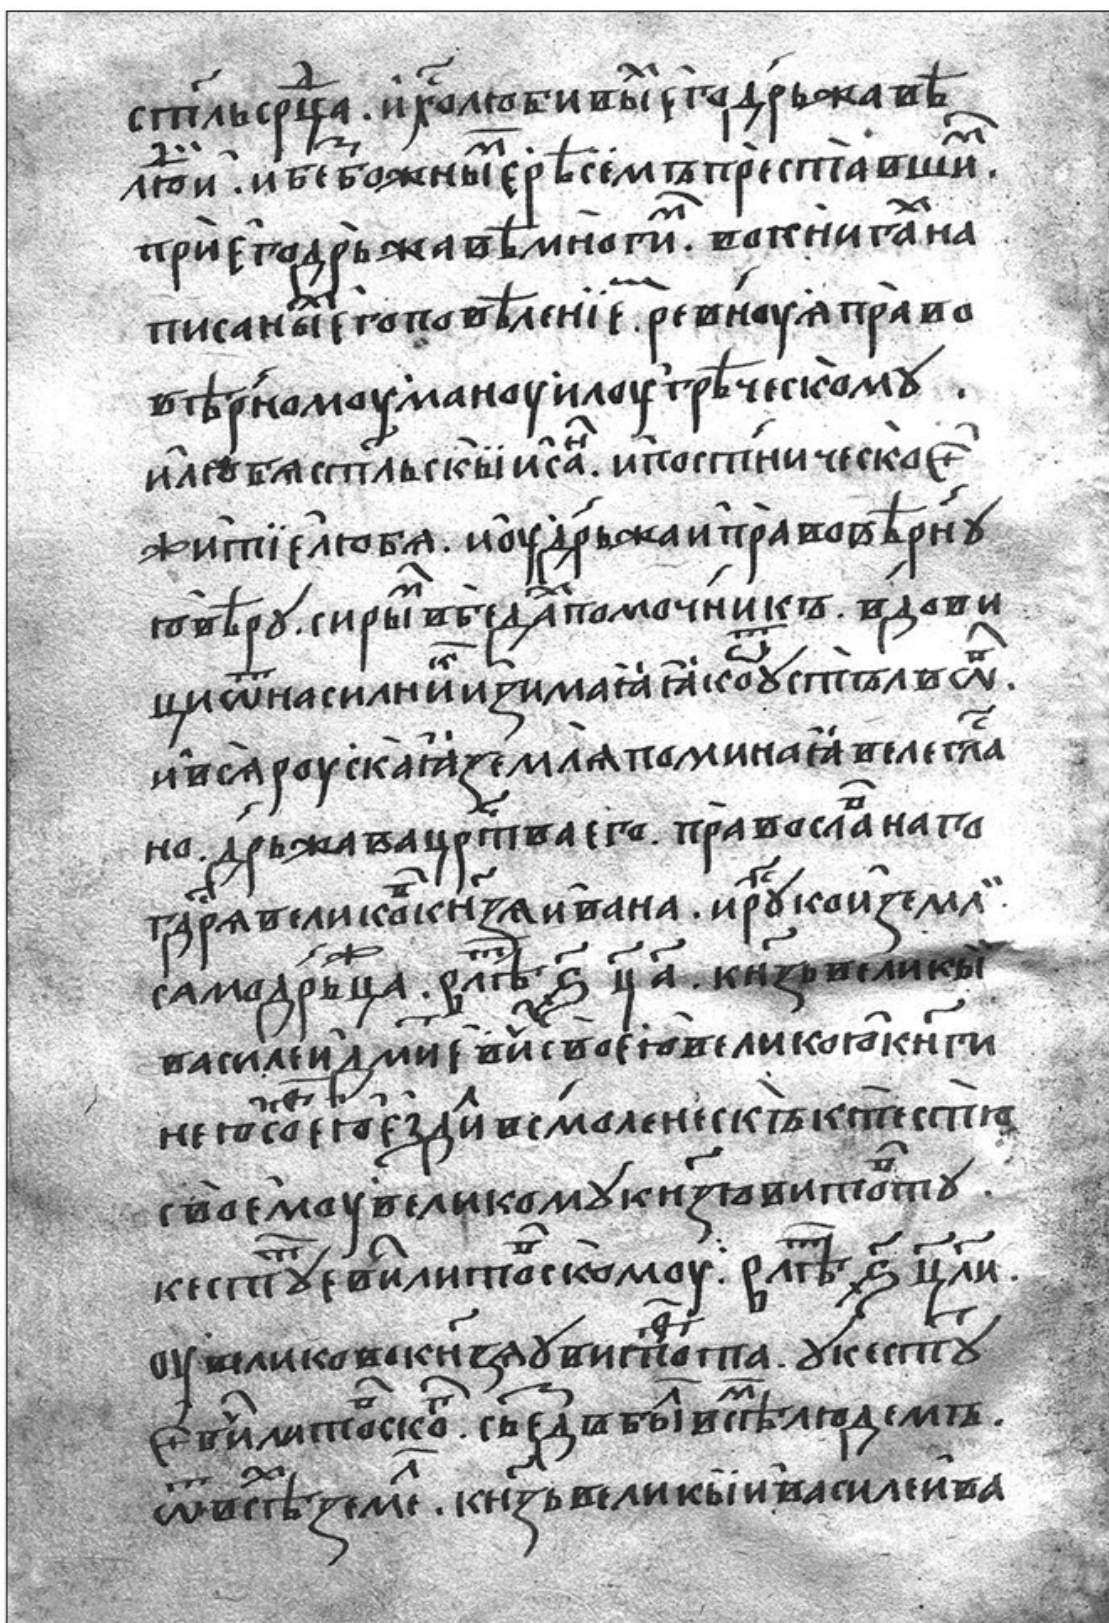 ст҃льсрⷣца . и҆ хⷭ҇олюбивыⷨ е҆го дрьжавѣ
люⷣи . и беⷥбожныⷨ е҆рѣсемъ преставшиⷨ .
при е҆го дрьжавѣ многиⷨ . в о книгаⷯ на
писаныⷯ е҆го повѣленїеⷨ . ревноуꙗ право
вѣрномоу маноуилоу грѣческомꙋ .
и҆ лю бѧ ст҃льскыи саⷩ . и постническое
житїе любѧ . и҆ оудрьжаи правовѣрнꙋ
ю вѣрꙋ . сирыⷨ в бедаⷯ помочникъ . вдови
ци ѿ насилниⷦ изимаꙗ ꙗко ст҃ль в соⷧⷡ .
и҆ всѧ роускаꙗ землѧ поминаꙗ велеглаⷭ
но . дрьжава црⷭ҇тва его . православⷡнаго
гдⷭ҇рѧ великоⷢ кнѧзѧ ивана . и рꙋⷭкои земли
самодрьжⷤца . в лѣⷮ ҂ѕ ц а . кнⷥ҇ь великы
василеи дмⷮиеви своею великою кнⷢгі
нею соⷴею еⷥдиⷧ в смоленескъ к тестю
своемоу великомꙋ кнⷥ҇ю витоⷡтꙋ .
кестꙋⷮевⷱи литоⷡскомоу . в лѣⷮ ҂ѕ ц л и .
оу великово кнⷥ҇ѧ ꙋ витоⷡта . ꙋ кестꙋ
евⷱи литоⷡскоⷢ . съеⷥдъ быⷧ всѣⷨ людемъ .
ѿ всѣⷯ землⷧь . кнⷥ҇ь великыи василеи ва